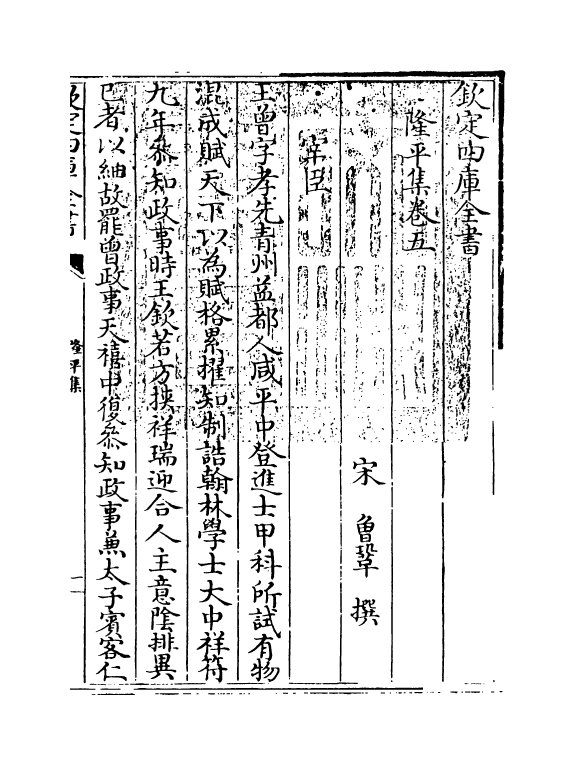 欽定四庫全書
隆平集卷五
宋 曾鞏 撰
宰臣
王曾字孝先青州益都人咸平中登進士甲科所試有物
混成賦天下以為賦格累擢知制誥翰林學士大中祥符
九年叅知政事時王欽若方挾祥瑞迎合人主意陰排異
己者以紬故罷曾政事天禧中復叅知政事兼太子賓客仁
欽定四庫全書
隆平集
一